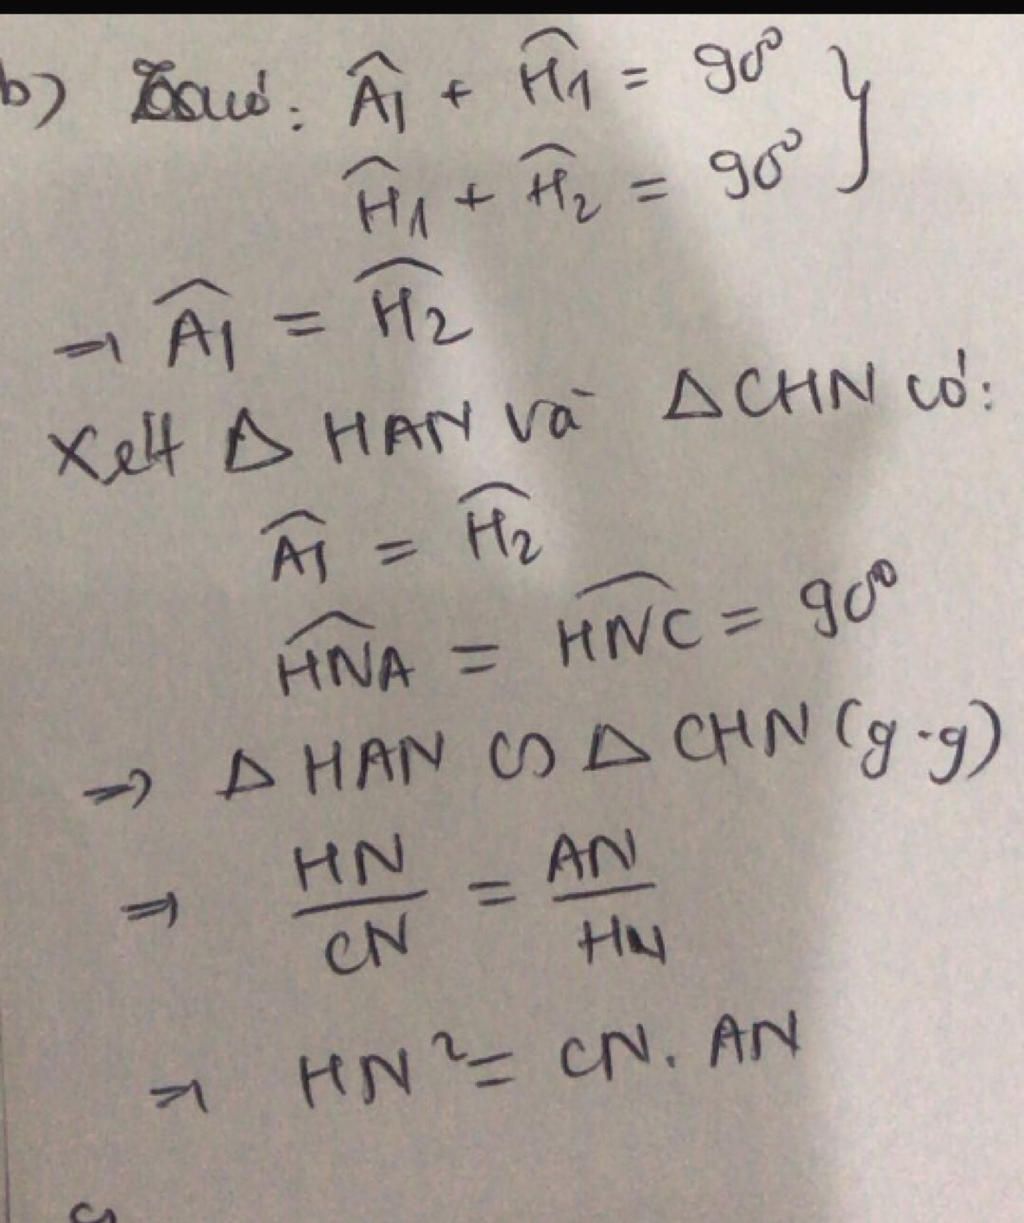 b) có: Â1 + Ĥ1 = 90°
Ĥ1 + Ĥ2 = 90° }
→ Â1 = Ĥ2
Xét Δ HAN và Δ CHN có:
Â1 = Ĥ2
\widehat{HNA} = \widehat{HNC} = 90°
⇒ Δ HAN ∽ Δ CHN (g.g)
⇒ HN/CN = AN/HN
⇒ HN² = CN. AN